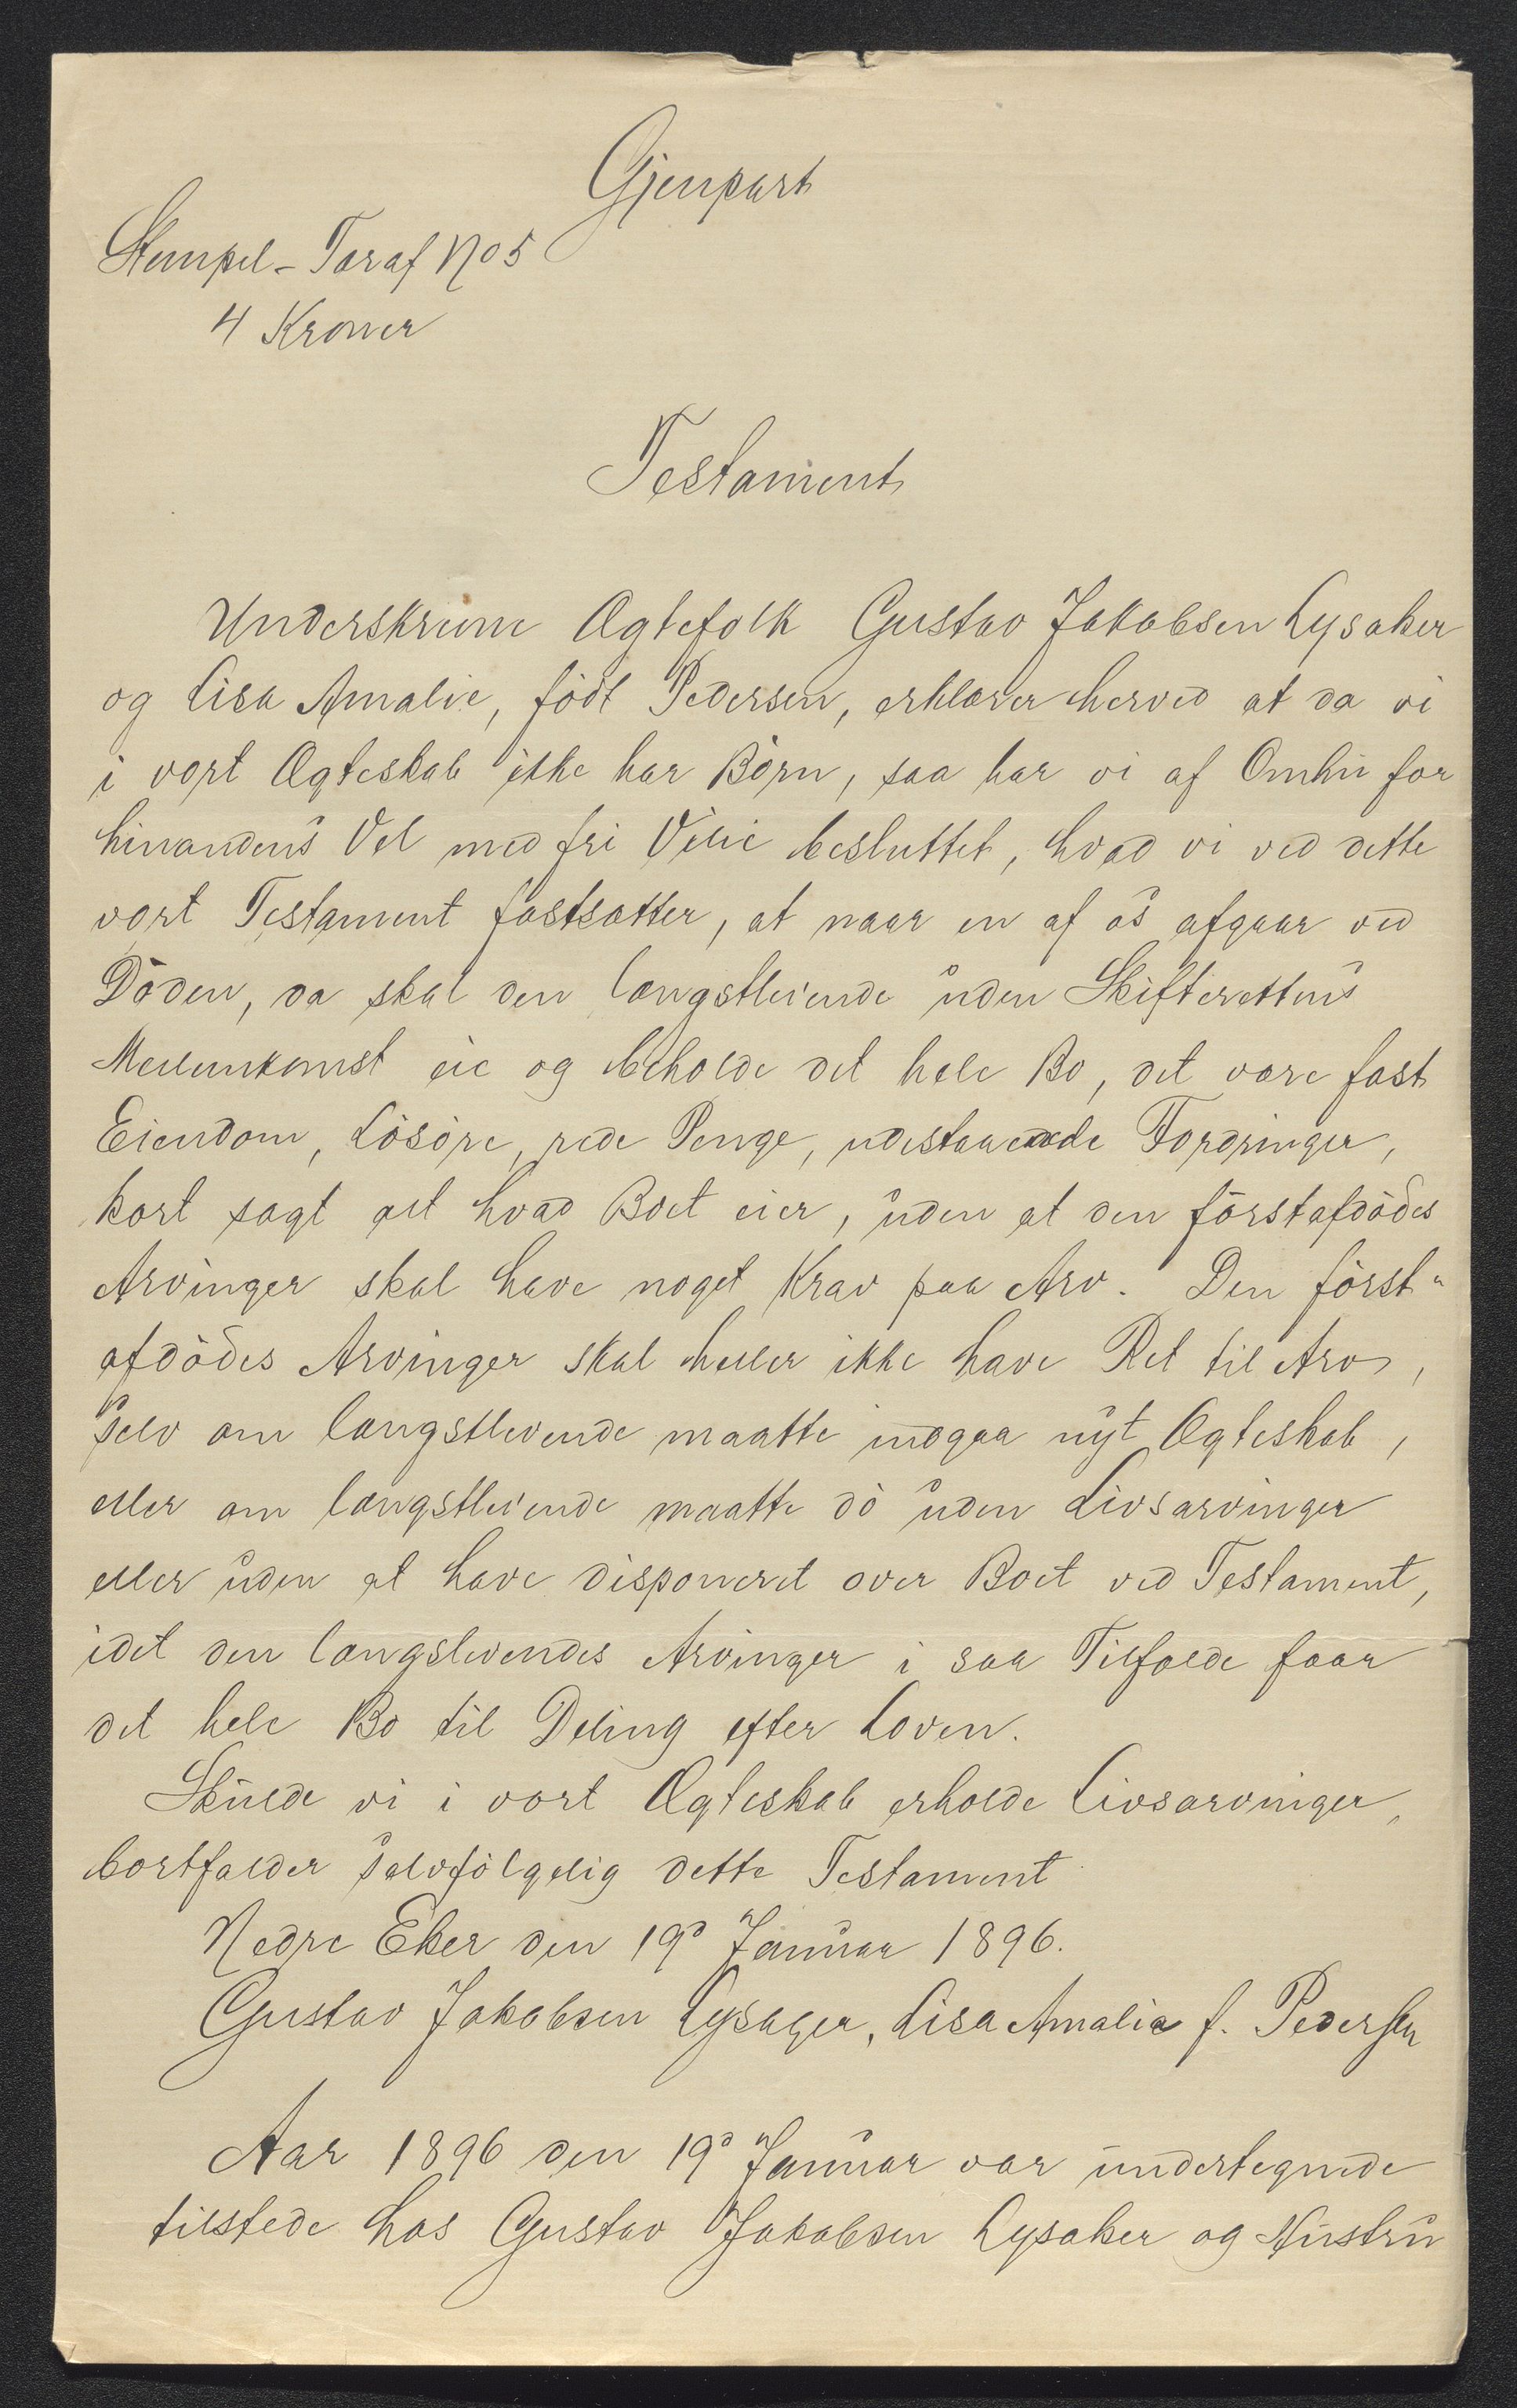 Gjenpart
Stempel-Taxaf No 5
4 Kroner
Testament
Underskrevne Ægtefolk Gustav Jakobsen Lysaker
og Lisa Amalie, födt Pedersen, erklærer herved at da vi
i vort Ægteskab ikke har Börn, saa har vi af Omhu for
hinandens Vel med fri Vilie besluttet, hvad vi ved dette
vort Testament fastsætter, at naar en af os afgaar ved
Döden, da skal den længstlevende uden Skifterettens
Mellemkomst eie og beholde det hele Bo, det være fast
Eiendom, Lösöre, rede Penge, udestaaende Fordringer,
kort sagt alt hvad Boet eier, uden at den förstafdödes
Arvinger skal have noget Krav paa Arv. Den först-
afdödes Arvinger skal heller ikke have Ret til Arv,
selv om længstlevende maatte indgaa nyt Ægteskab,
eller om længstlevende maatte dö uden Livsarvinger
eller uden at have disponeret over Boet ved Testament,
idet den længslevendes Arvinger i saa Tilfælde faar
det hele Bo til Deling efter Loven.
Skulde vi i vort Ægteskab erholde Livsarvinger,
bortfalder selvfölgelig dette Testament
Nedre Eker den 19d Januar 1896.
Gustav Jakobsen Lysager, Lisa Amalie f. Pedersen
Aar 1896 den 19d Januar var undertegnede
tilstede hos Gustav Jakobsen Lysaker og Hustru